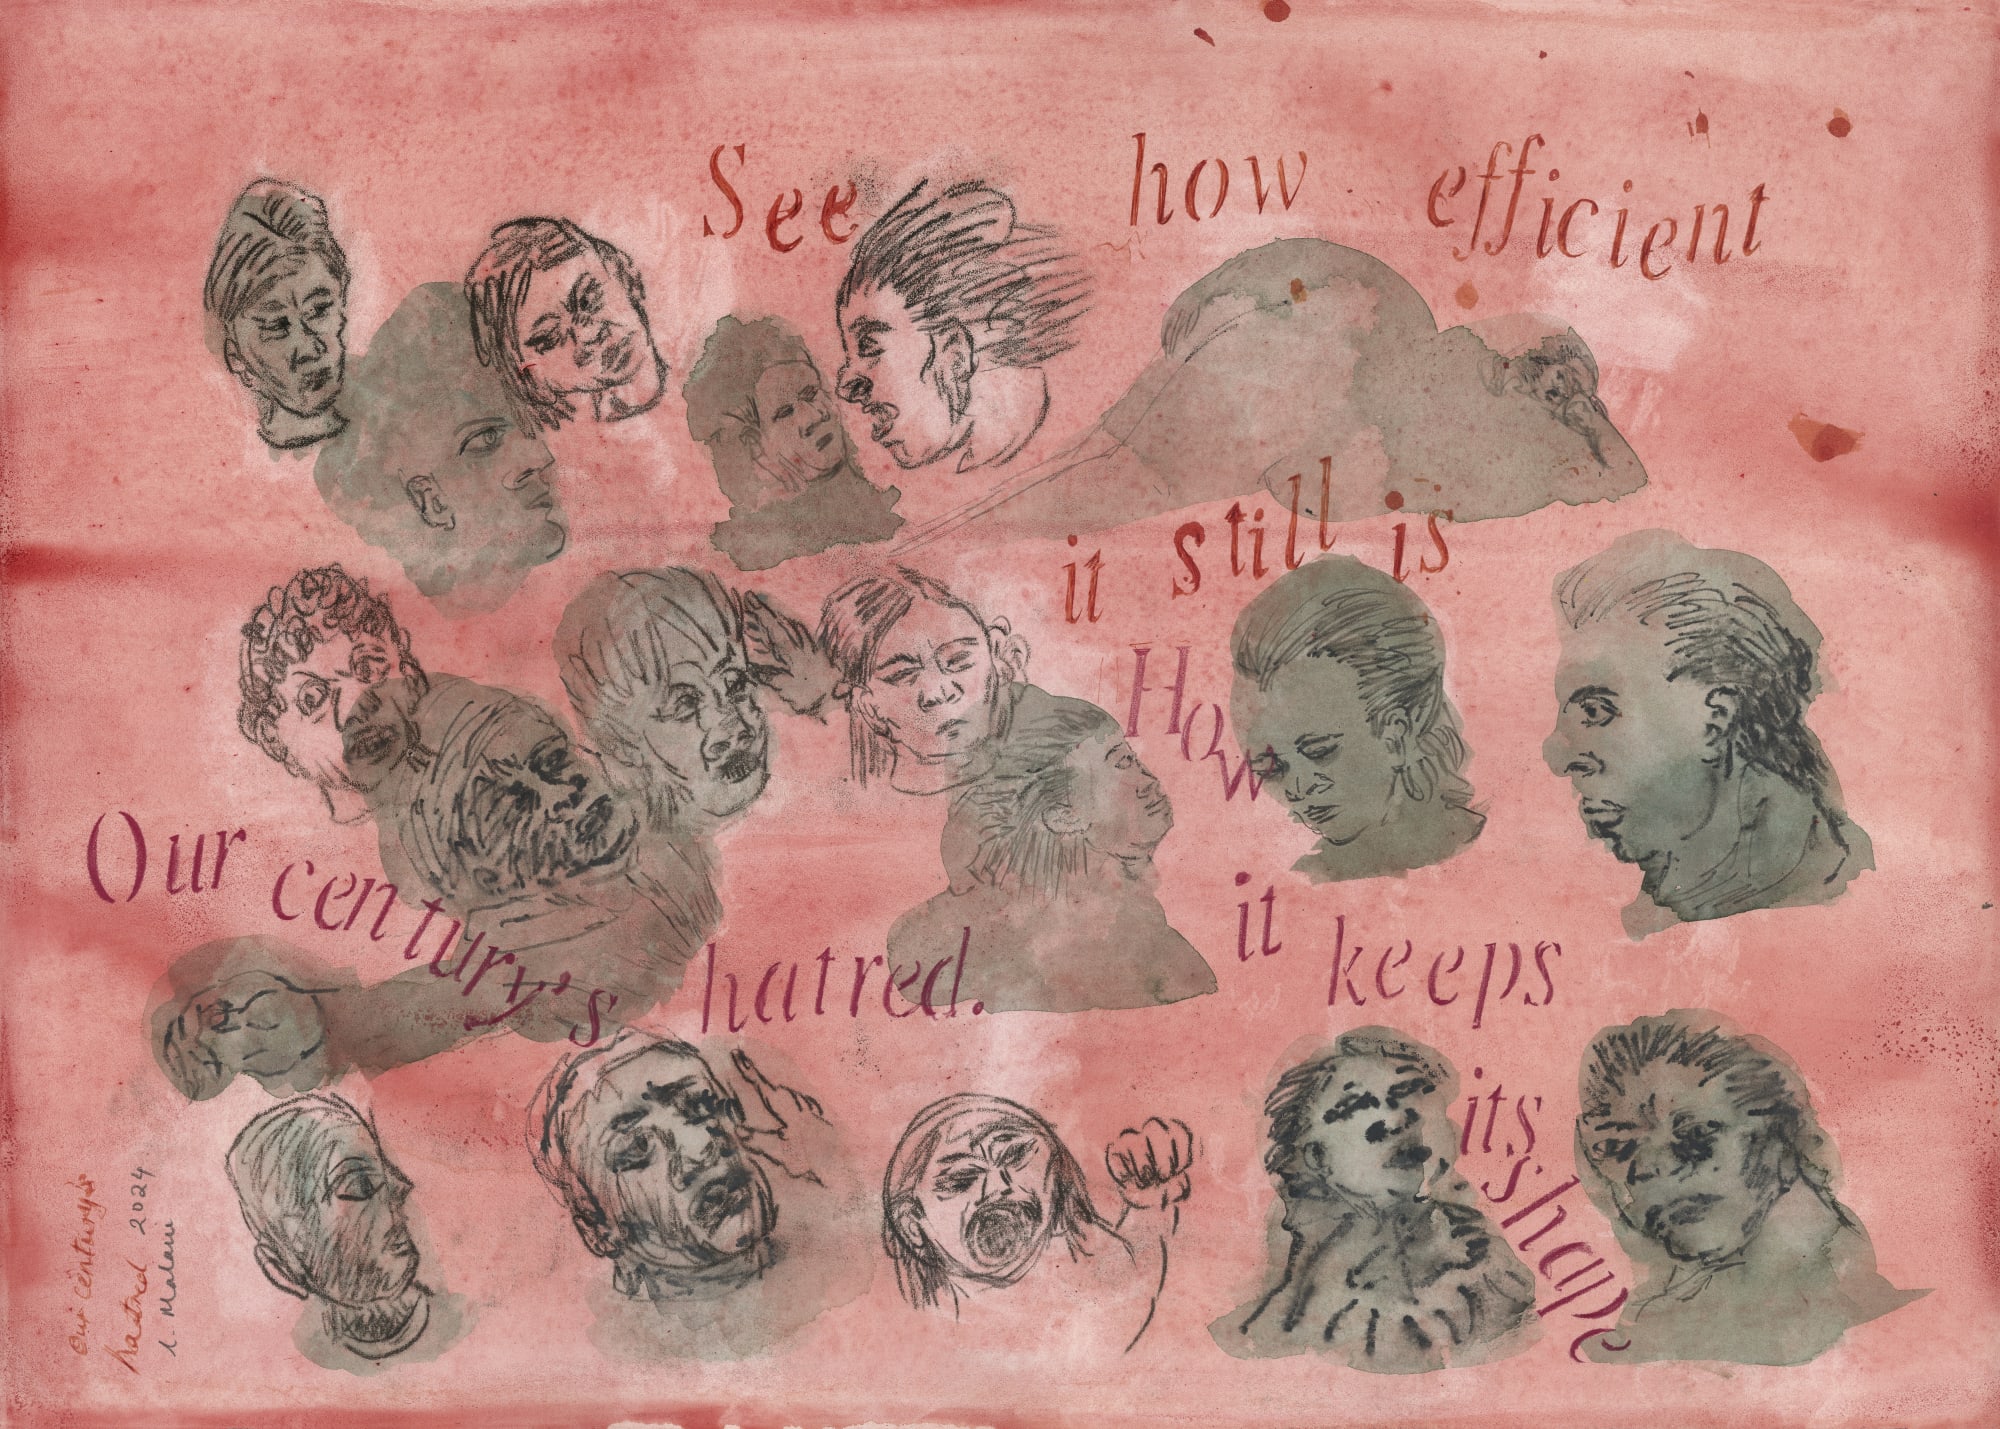 See how efficient
it still is
How
it keeps
its
shape
Our century's hatred.
Our Century's
hatred 2024
N. Malani